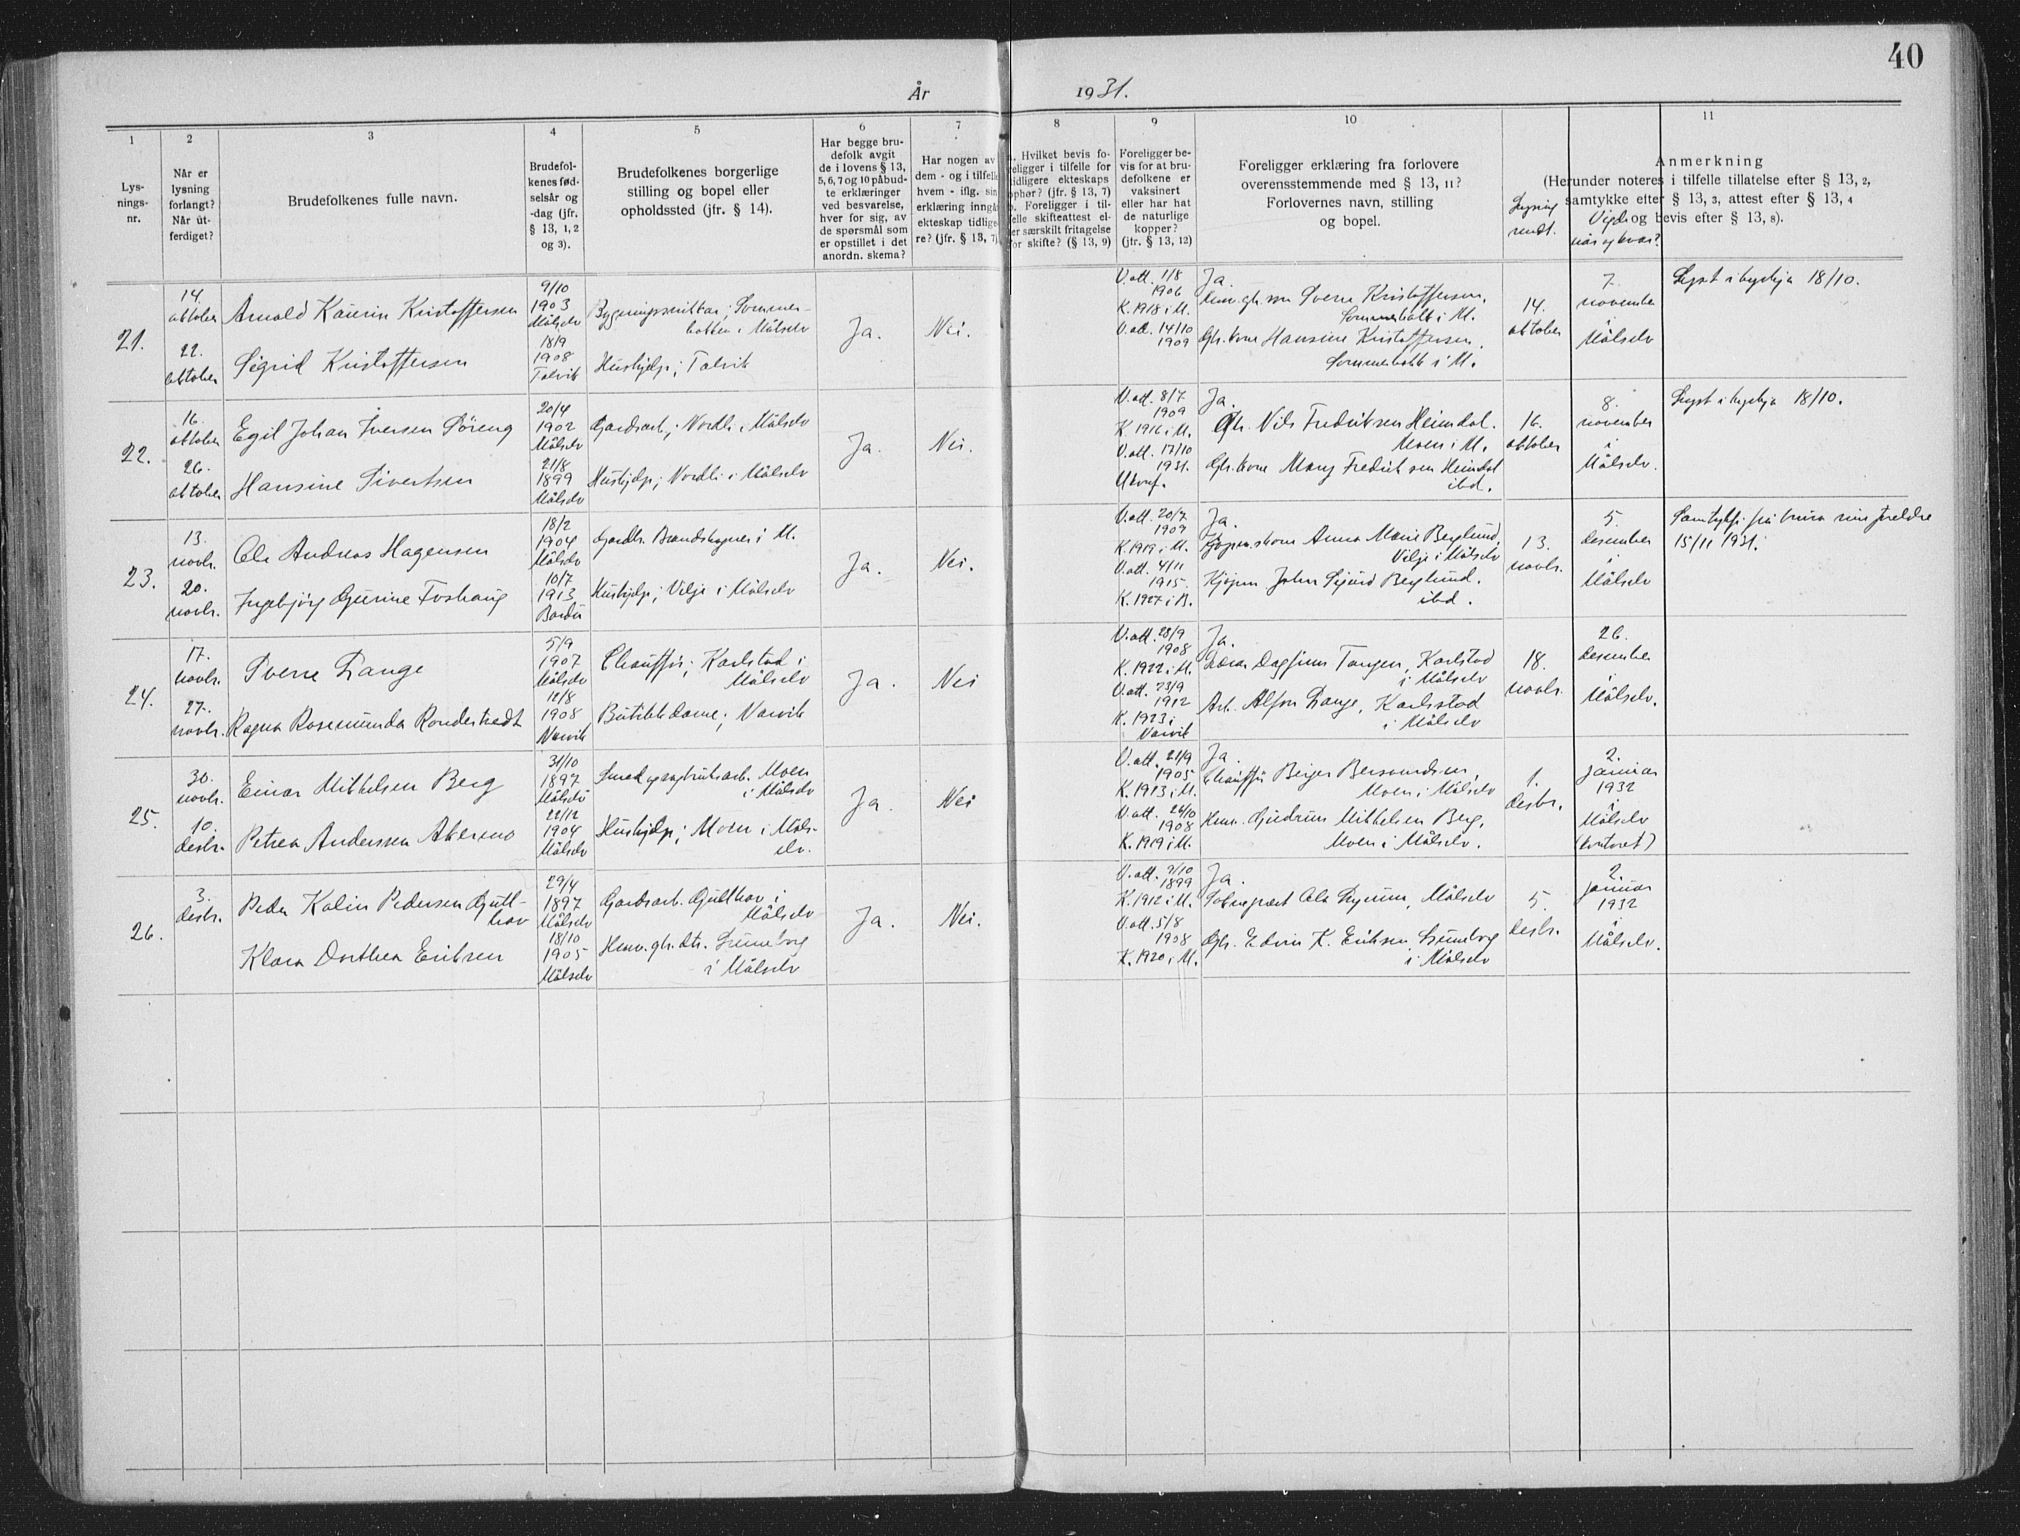 40
År 1931.
1 2 3 4 5 6 7 8 9 10 11
Lysningsnr.
Når er lysning forlangt? Når utferdiget?
Brudefolkenes fulle navn.
Brudefolkenes fødselsår og -dag (jfr. § 13, 1, 2 og 3).
Brudefolkenes borgerlige stilling og bopel eller opholdssted (jfr. § 14).
Har begge brudefolk avgit de i lovens § 13, 5, 6, 7 og 10 påbudte erklæringer ved besvarelse, hver for sig, av de spørsmål som er opstillet i det anordn. skema?
Har nogen av dem - og i tilfelle hvem - iflg. sin erklæring inngå ekteskap tidligere? (jfr. § 13, 7)
Hvilket bevis foreligger i tilfelle for tidligere ekteskaps ophør? (jfr. § 13, 7)
Foreligger i tilfelle skifteattest eller særskilt fritagelse for skifte? (§ 13, 9)
Foreligger bevis for at brudefolkene er vaksinert eller har hat de naturlige kopper? (jfr. § 13, 12)
Foreligger erklæring fra forlovere overensstemmende med § 13, 11? Forlovernes navn, stilling og bopel.
Lysning sendt.
Vigde når og hvor?
Anmerkning
(Herunder noteres i tilfelle tillatelse efter § 13, 2, samtykke efter § 13, 3, attest efter § 13, 4 og bevis efter § 13, 8).
21.
14. oktober
22. oktober
Arnold Kaurin Kristoffersen
Sigrid Kristoffersen
9/10 1903 Målselv
18/9 1908 Talvik
i Målselv
Hushjelp; Talvik
Ja.
Nei.
V. att. 1/8 1906
K. 1918 i M.
V. att. 14/10 1909
Ja.
Sverre Kristoffersen,
i M.
Gbr. kone Hansine Kristoffersen,
i M.
14. oktober
7. november i Målselv
Lyst i 18/10.
22.
16. oktober
26. oktober
Egil Johan Iversen Søreng
Hansine Sivertsen
20/4 1902 Målselv
21/8 1899 Målselv
Gardsarb.; Nordli i Målselv
Hushjelp; Nordli i Målselv
Ja.
Nei.
V. att. 8/7 1909
K. 1916 i M.
V. att. 17/10 1931.
Ukonf.
Ja.
Gbr. Nils Fredriksen Heimdal.
Moen i M.
Gbr. kone Mary Fredriksen Heimdal
ibd.
16. oktober
8. november i Målselv.
Lyst i 18/10.
23.
13. novbr.
20. novbr.
Ole Andreas Hagensen
Ingebjørg Gurine Foshaug
18/2 1904 Målselv
10/7 1913 Bardu
Gardbr. Brandskognes i M.
Hushjelp; Vilje i Målselv
Ja.
Nei.
V. att. 20/7 1909
K. 1919 i M.
V. att. 4/11 1915.
K. 1927 i B.
Ja.
Anna Marie Berglund,
Vilje i Målselv
Kjøpm. John Sigurd Berglund.
ibd.
13. novbr.
5. desember i Målselv
Samtykje frå brura sine foreldre
15/11 1931.
24.
17. novbr.
27. novbr.
Sverre Lange
Ragna Rosemunda Rondestvedt
5/9 1907 Målselv
12/8 1908 Narvik
Chauffør; Karlstad i Målselv
Butikkdame; Narvik
Ja.
Nei
V. att. 28/9 1908
K. 1922 i M.
V. att. 23/9 1912
K. 1923 i Narvik
Ja.
Dagfinn Tangen, Karlstad
i Målselv
Arb. Alfon Lange, Karlsstad
i Målselv
18. novbr.
26. desember i Målselv.
25.
30. novbr.
10. desbr.
Einar Mikkelsen Berg
Petrea Anderssen Akermo
31/10 1897 Målselv
22/12 1904 Målselv
Moen i Målselv
Hushjelp; Moen i Målselv.
Ja.
Nei
V. att. 21/9 1905
K. 1913 i M.
V. att. 26/10 1908
K. 1919 i M.
Ja.
Chauffør Birger Berntsen,
Moen i Målselv
Gudrun Mikkelsen Berg,
Moen i Målselv.
1. desbr.
2. januar 1932 i Målselv
(kontoret)
26.
3. desbr.
Peder Kolin Pedersen Gullhav
Klara Dorthea Eriksen
29/4 1897 Målselv
18/10 1905 Målselv
Gardsarb. Gullhav i Målselv
Hmv. gbr. dtr. i Målselv
Ja.
Nei.
V. att. 9/10 1899
K. 1912 i M.
V. att. 5/8 1908
K. 1920 i M.
Ja.
Sokneprest Ola Målselv
Gbr. Edvin K. Eriksen,
i Målselv
5. desbr.
2. januar 1932 i Målselv.